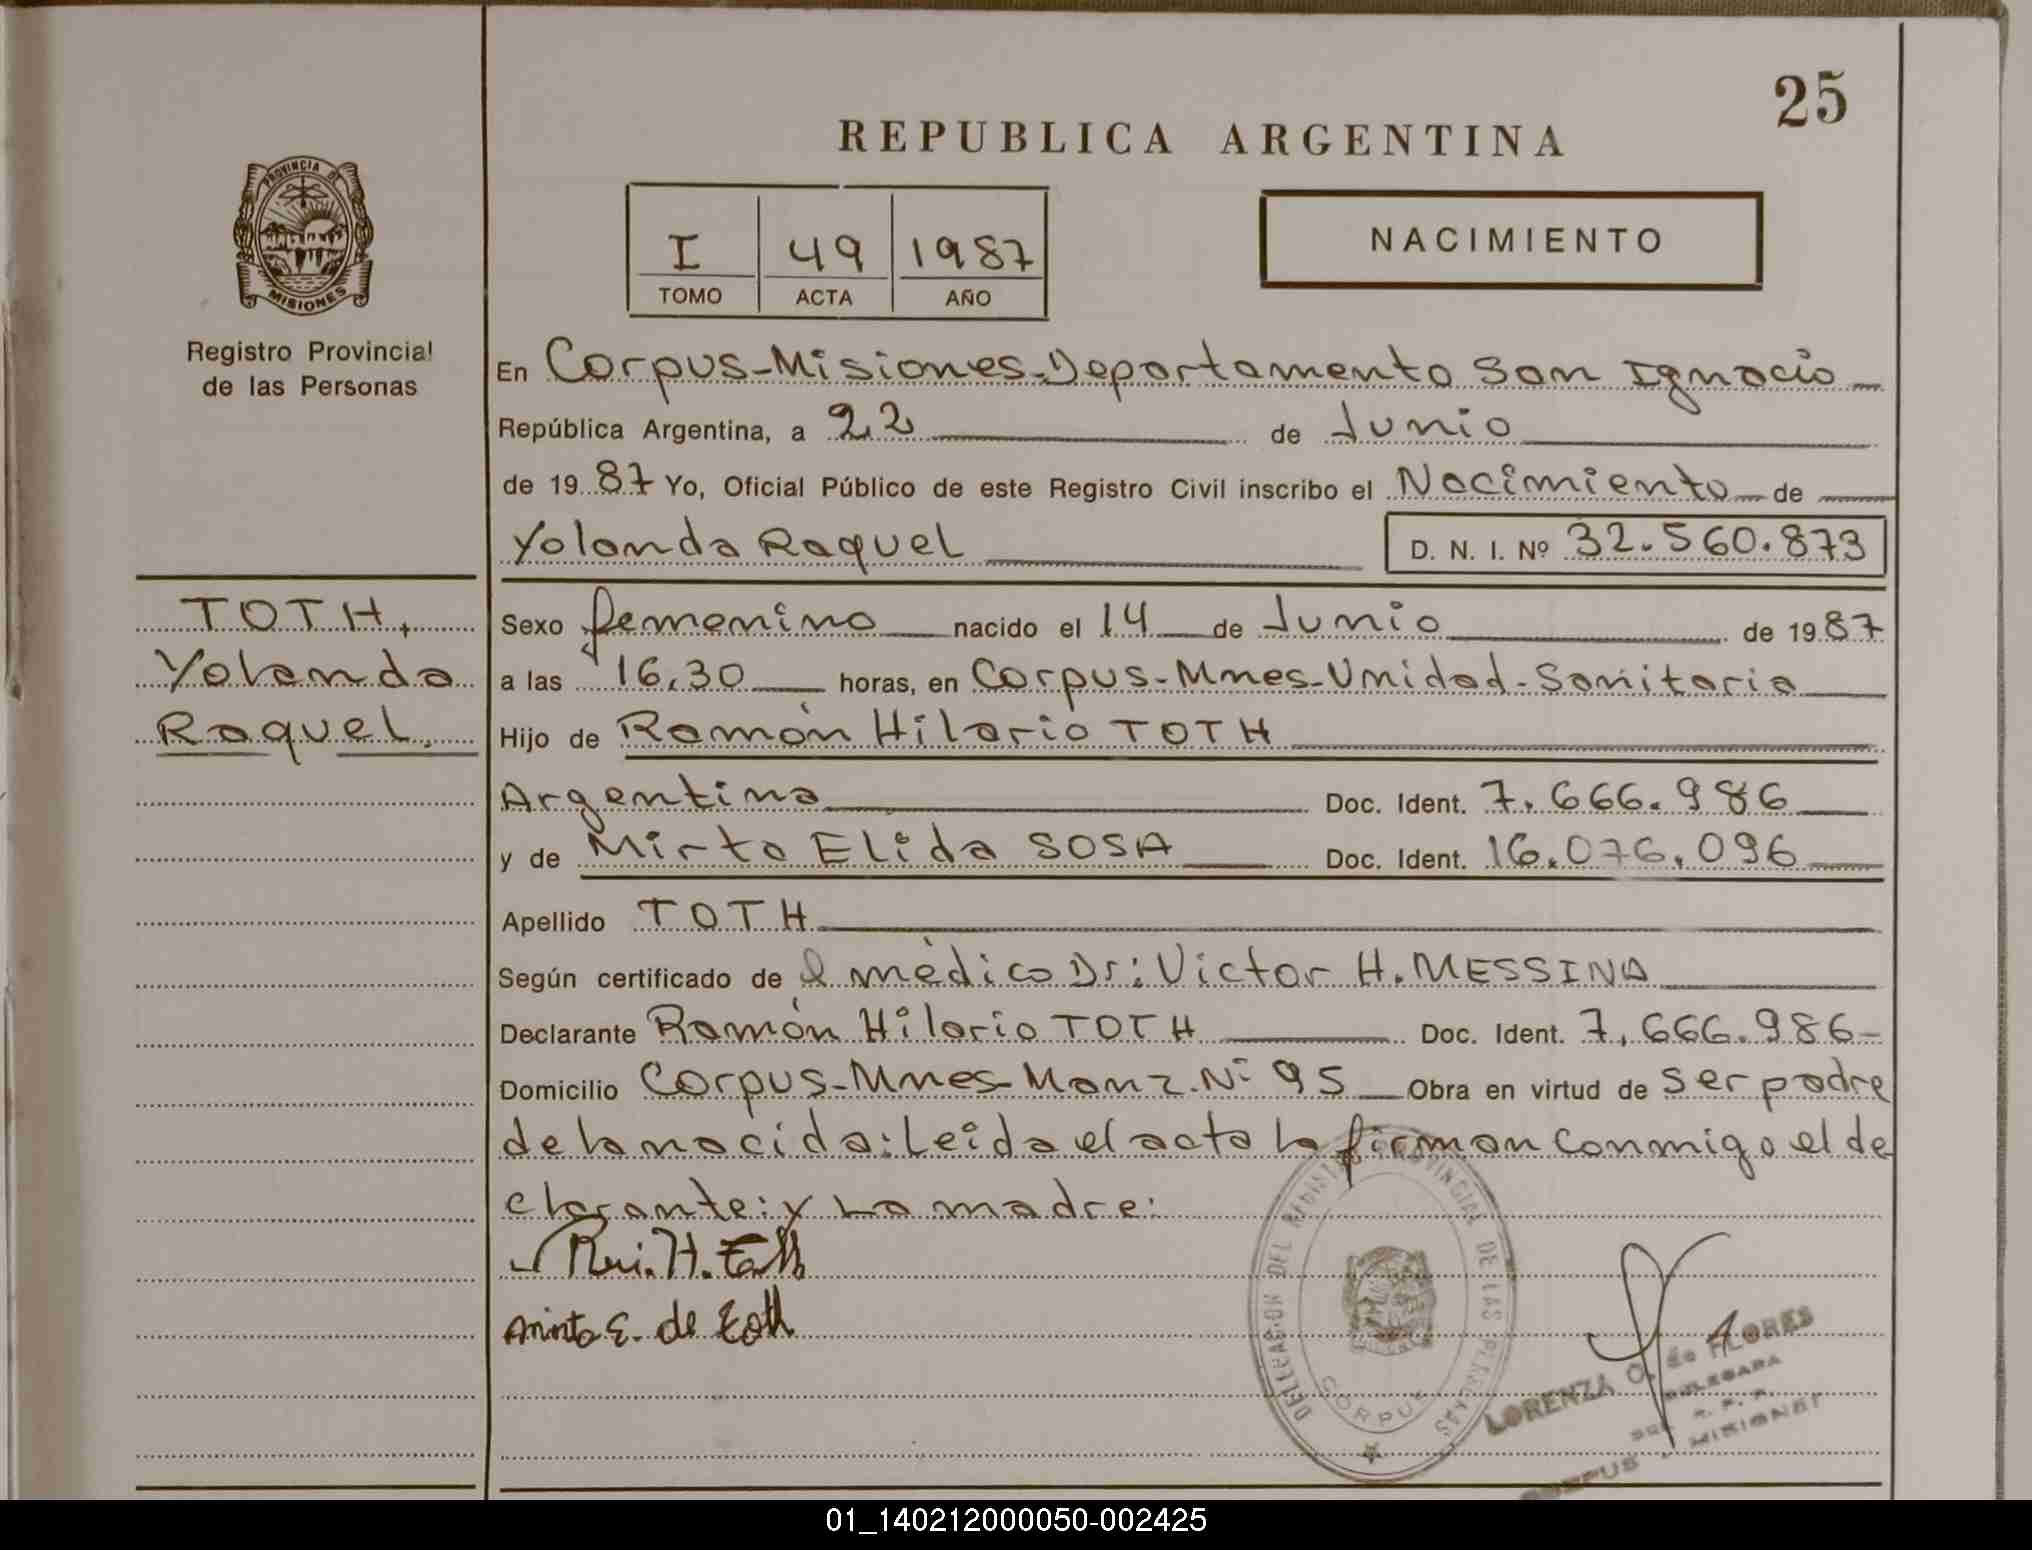 25
REPUBLICA ARGENTINA
PROVINCIA DE
MISIONES
Registro Provincial
de las Personas
I 49 1987
TOMO ACTA AÑO
NACIMIENTO
En Corpus-Misiones-Departamento San Ignacio
República Argentina, a 22 de Junio
de 1987 Yo, Oficial Público de este Registro Civil inscribo el Nacimiento de
Yolanda Raquel D. N. I. Nº 32.560.873
TOTH,
Yolanda
Raquel.
Sexo femenino nacido el 14 de Junio de 1987
a las 16,30 horas, en Corpus-Mnes-Unidad-Sanitaria
Hijo de Ramón Hilario TOTH
Argentina Doc. Ident. 7.666.986
y de Mirta Elida SOSA Doc. Ident. 16.076.096
Apellido TOTH
Según certificado de el médico Dr: Victor H. MESSINA
Declarante Ramón Hilario TOTH Doc. Ident. 7.666.986-
Domicilio Corpus-Mnes-Manz.Nº 95 Obra en virtud de ser padre
de la nacida: Leida el acta la firman conmigo el de
clarante: y La madre:
H. Toth
Mirta E. de Toth
DELEGACION DEL REGISTRO PROVINCIAL DE LAS PERSONAS
CORPUS
LORENZA O. de FLORES
DELEGADA
R. P. P.
CORPUS - MISIONES
01_140212000050-002425